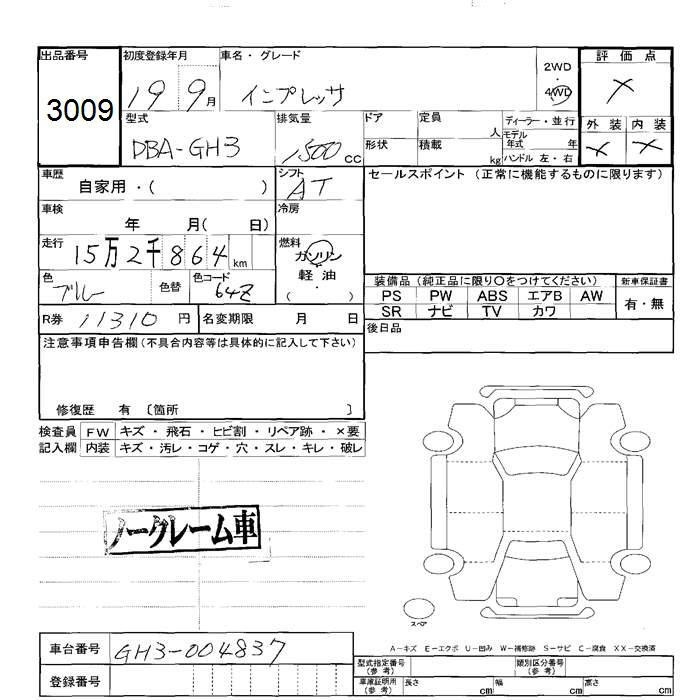 出品番号 初度登録年月 車名・グレード 評価点
3009 19 9月 インプレッサ 2WD・4WD ×
型式 排気量 ドア 定員 人 ディーラー・並行 外装 内装
DBA-GH3 1500cc 形状 積載 kg モデル年式 年 ハンドル 左・右 × ×
車歴 自家用・( ) シフト AT セールスポイント (正常に機能するものに限ります)
車検 年 月( 日) 冷房
走行 15万2千864km 燃料 ガソリン
軽油
( )
色 ブルー 色替 色コード 64Z
装備品 (純正品に限り○をつけてください) 新車保証書
PS PW ABS エアB AW 有・無
SR ナビ TV カワ
R券 11310円 名変期限 月 日 後日品
注意事項申告欄(不具合内容等は具体的に記入して下さい)
修復歴 有 〔箇所 〕
検査員 FW キズ・飛石・ヒビ割・リペア跡・×要
記入欄 内装 キズ・汚レ・コゲ・穴・スレ・キレ・破レ
ノークレーム車
スペア
A-キズ E-エクボ U-凹み W-補修跡 S-サビ C-腐食 XX-交換済
車台番号 GH3-004837
登録番号
型式指定番号(参考) 類別区分番号(参考)
車庫証明用(参考) 長さ cm 幅 cm 高さ cm